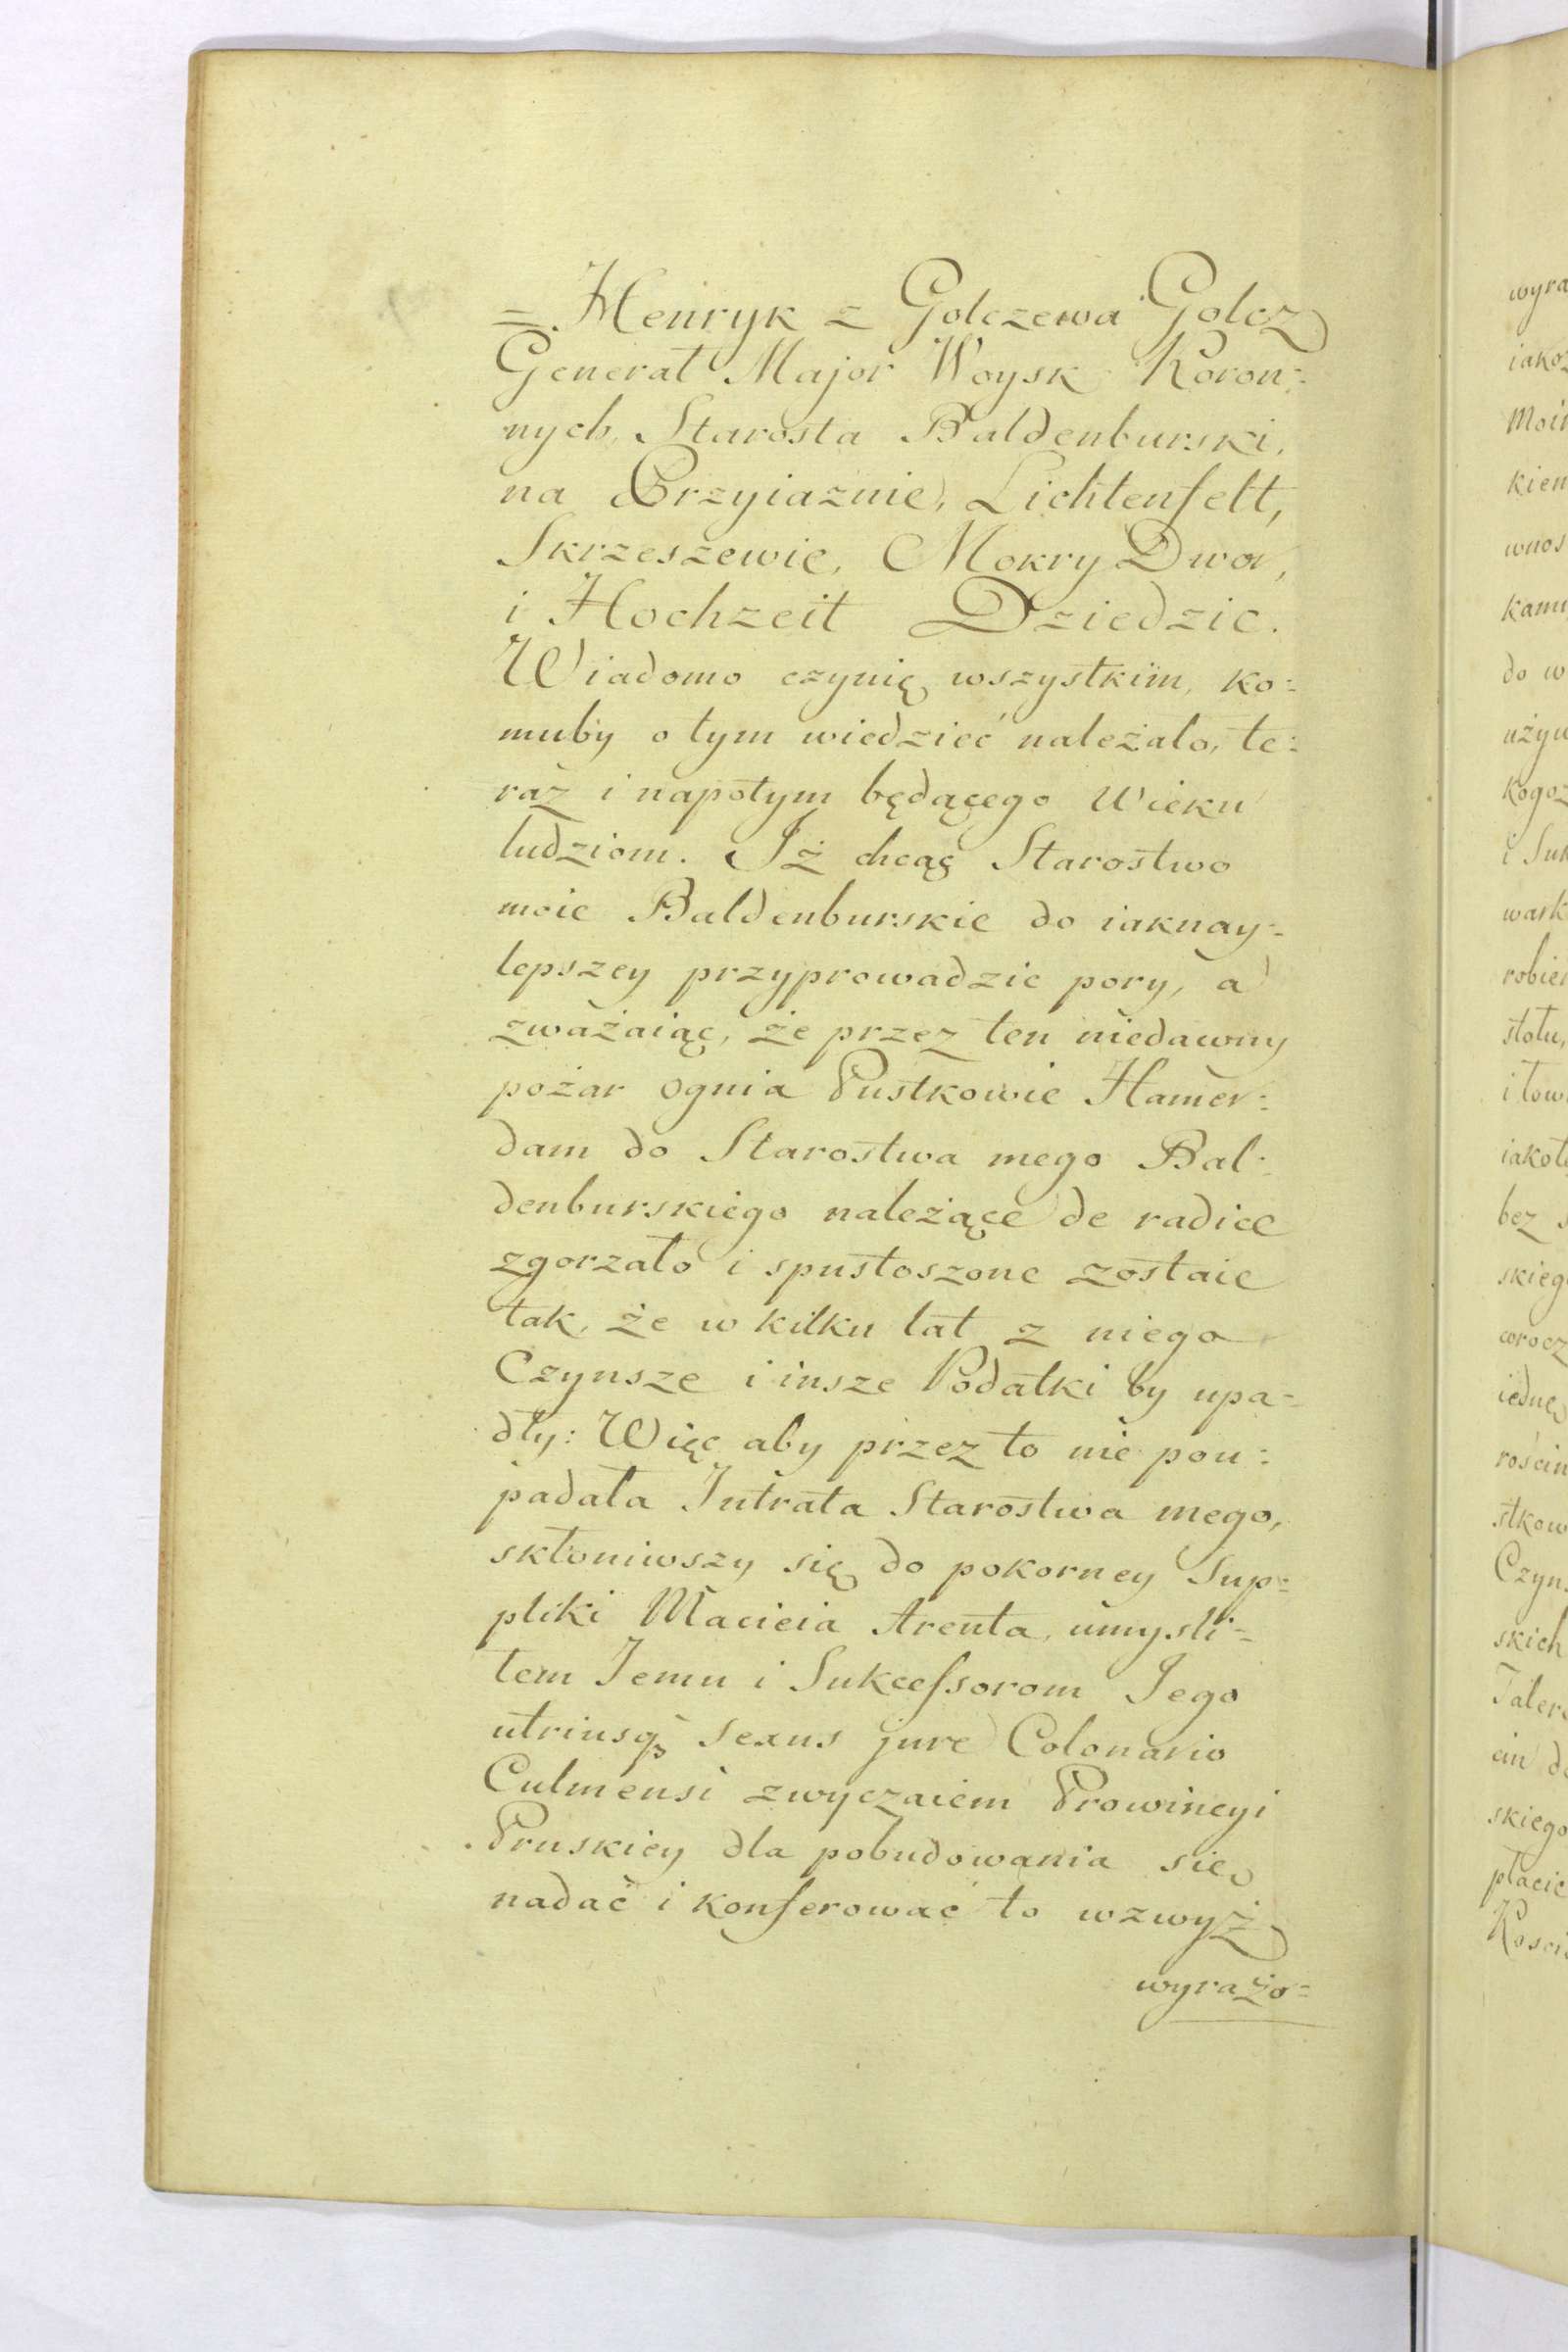 = Henryk z Golczewa Golcz
Generał Major Woysk Koron=
nych, Starosta Baldenburski,
na Przyiaznie, Lichtenfelt,
Skrzeszewie, Mokry Dwor,
i Hochzeit Dziedzic.
Wiadomo czynię wszystkim, ko=
muby o tym wiedzieć należało, te=
raz i napotym będącego Wieku
ludziom. Iż chcąc Starostwo
moie Baldenburskie do iaknay=
lepszey przyprowadzic pory, a
zważaiąc, że przez ten niedawny
pożar ognia Pustkowie Hamer=
dam do Starostwa mego Bal=
denburskiego należące de radice
zgorzało i spustoszone zostaie
tak, że w kilku lat z niego
Czynsze i insze Podatki by upa=
dły: Więc aby przez to nie pou=
padała Intrata Starostwa mego,
skłoniwszy się do pokorney Sup=
pliki Macieia Arenta, umysli=
łem Iemu i Sukcessorom Iego
utriusq₃ Sexus jure Colonario
Culmensi zwyczaiem Prowincyi
Pruskiey dla pobudowania się
nadać i konferować to wzwyż
wyrażo=
wyra
iakoż
Moi
kien
wnos
kami
do w
używ
kogoż
i Suk
wark
robie
stołu,
i tow
iakote
bez s
skieg
corocz
iedne
rościn
stkow
Czyn
skich
Taler
cin d
skiego
płacic
Kosci